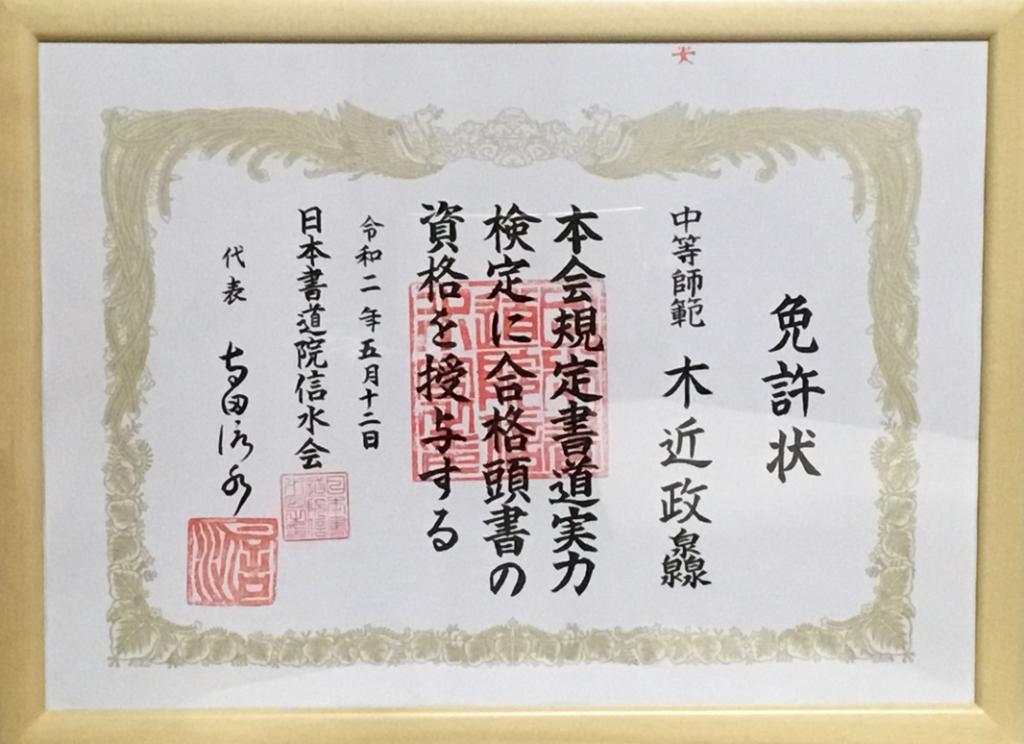 免許状
中等師範 木近政灥
本会規定書道実力
検定に合格頭書の
資格を授与する
令和二年五月十二日
日本書道院信水会
代表 吉田信水